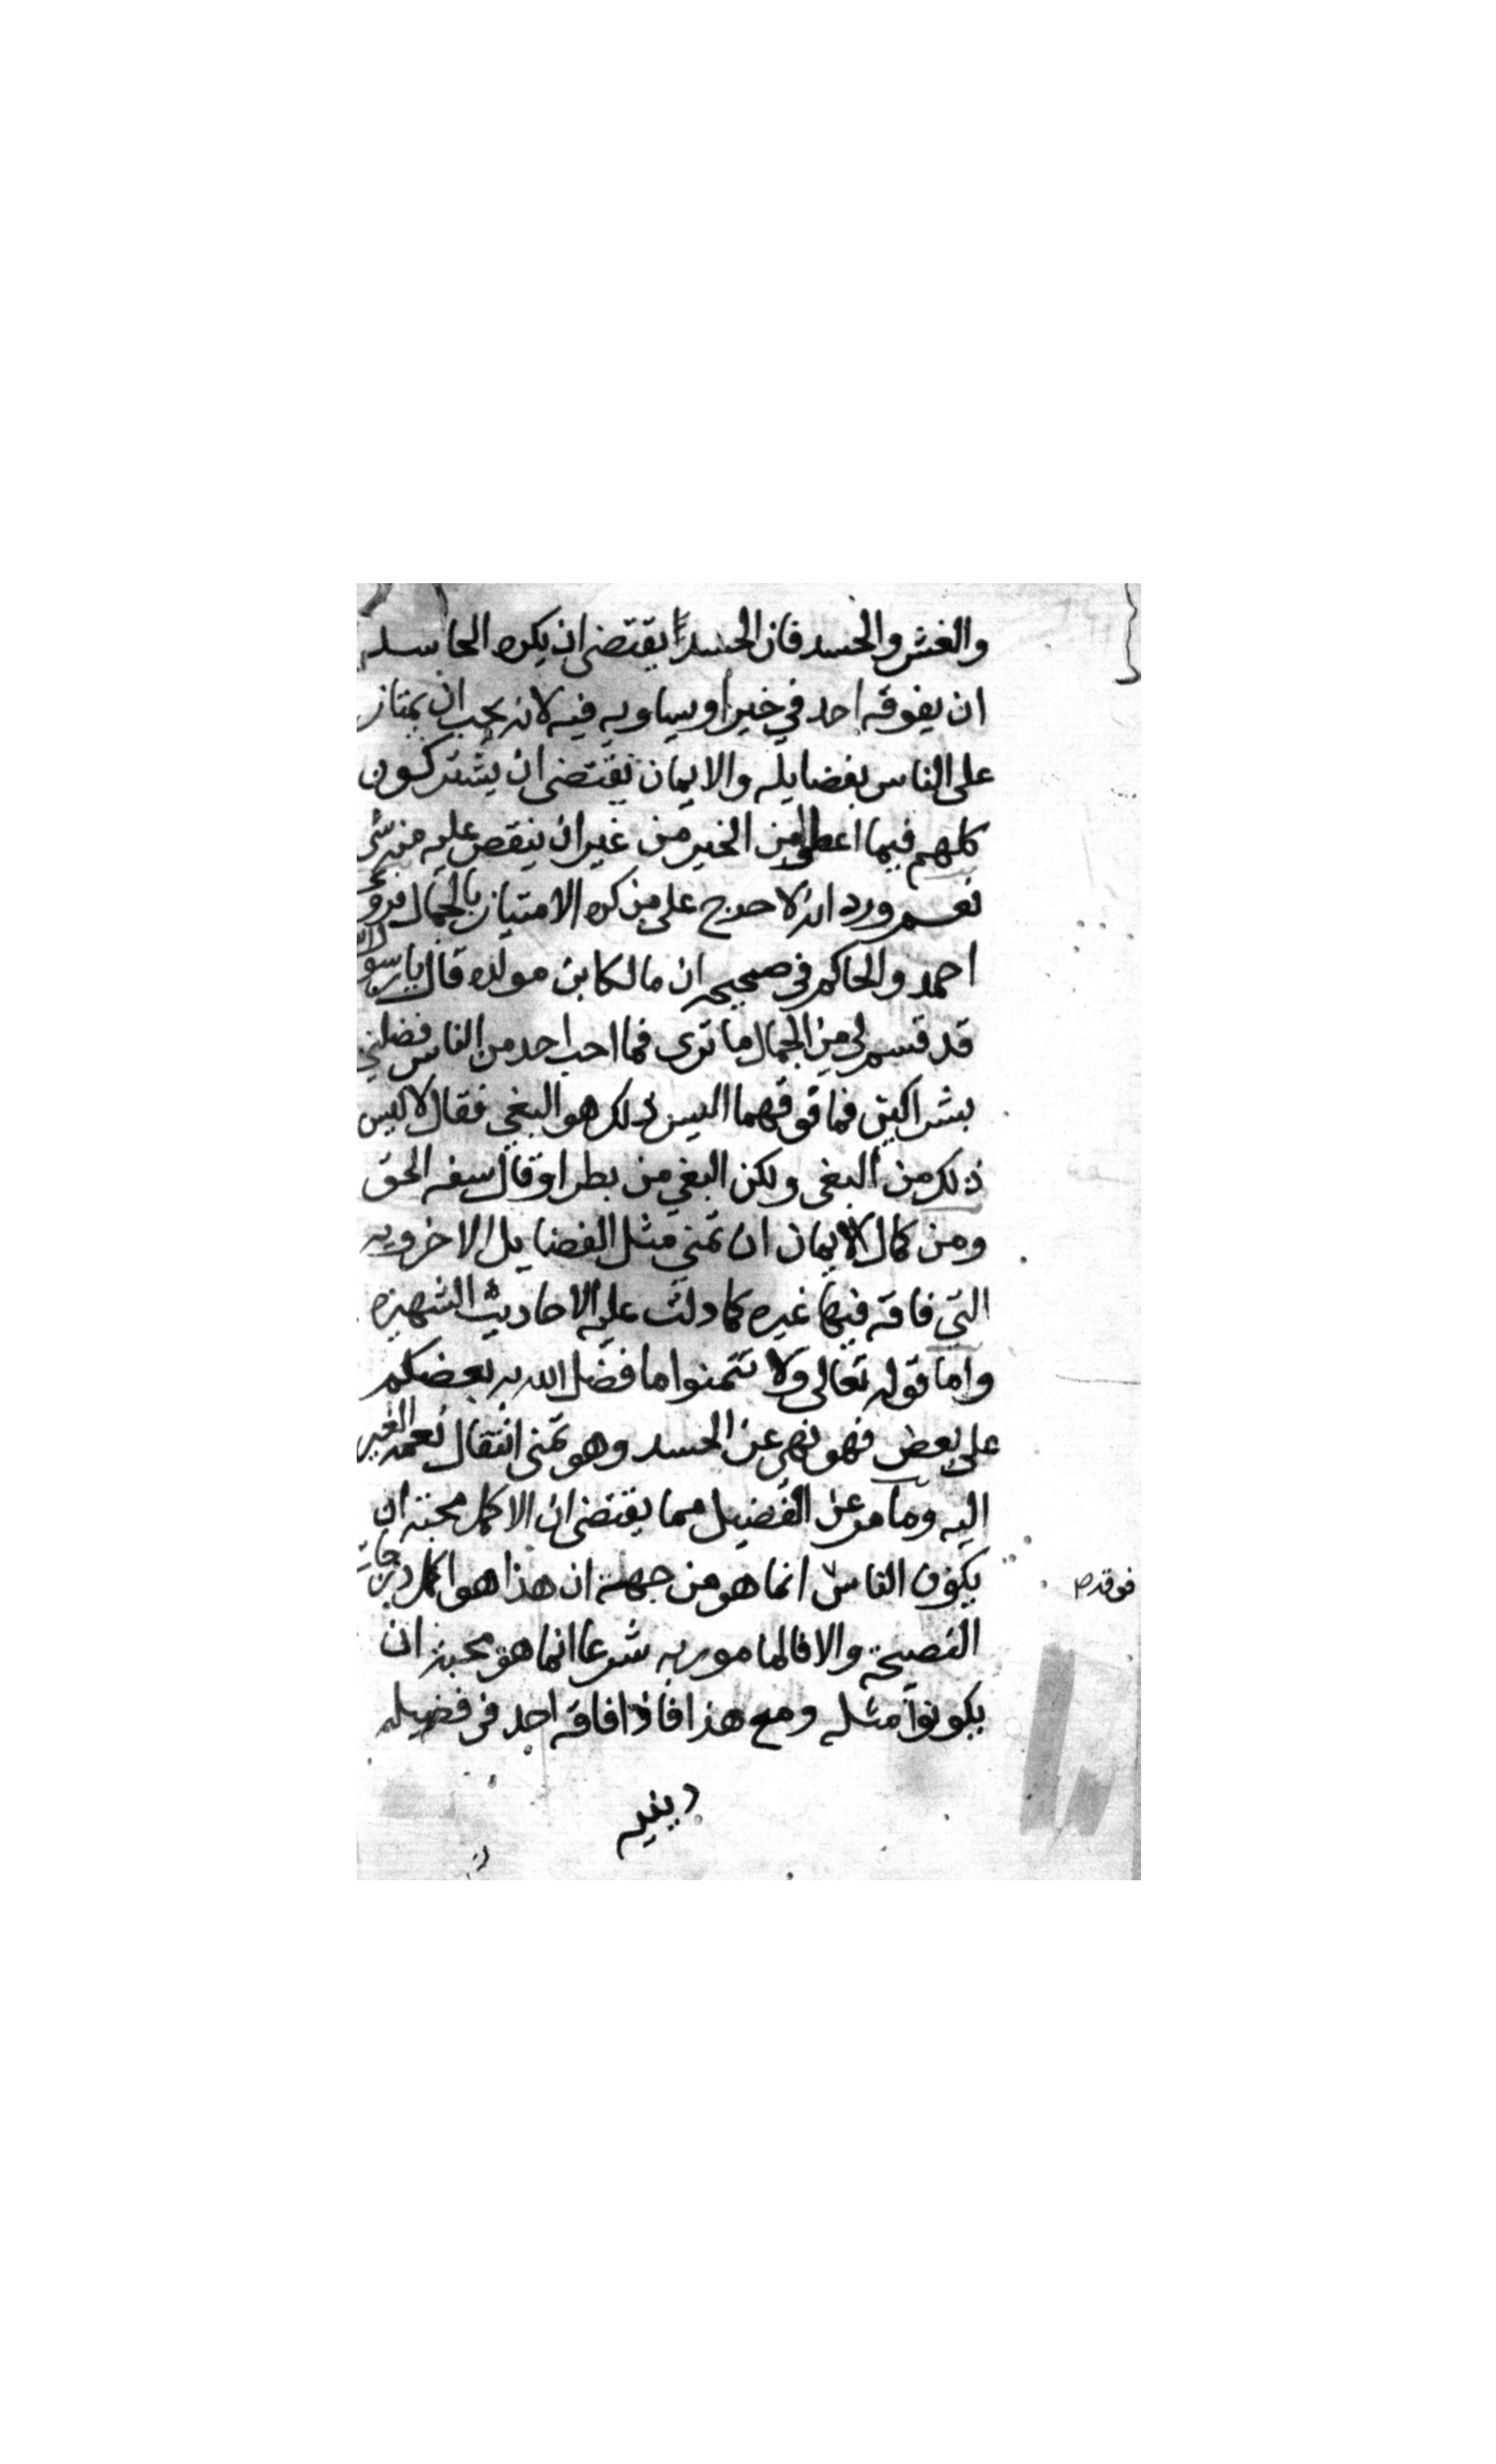 والغش والحسد فان الحسد يقتضي ان يكره الحاسد
ان يفوقه احد في خير او يساويه فيه لانه يحب ان يمتاز
على الناس بفضايله والايمان يقتضي ان يشتركون
كلهم فيما اعطي من الخير من غير ان ينقص عليه منه شي
نعم ورد انه لا حرج على من كره الامتياز بالجمال فروى
احمد والحاكم في صحيحه ان مالكا بن قال يا رسول الله
قد قسم لي من الجمال ما ترى فما احب احد من الناس فضلني
بشراكين فما فوقهما اليس ذلك هو البغي فقال لا ليس
ذلك من البغي ولكن البغي من بطر او قال سفه الحق
ومن كمال الايمان ان تمني مثل الفضايل الاخرويه
التي فاقه فيها غيره كما دلت عليه الاحاديث الشهيره
واما قوله تعالى ولا تتمنوا ما فضل الله به بعضكم
على بعض فهو نهي عن الحسد وهو تمني انتقال نعمة الغير
اليه وما مر عن الفضيل مما يقتضي ان الاكمل محبته ان
يكون الناس انما هو من جهة ان هذا هو اكمل درجات
فوقه
النصيحة والا فالمامور به شرعا انما هو محبته ان
يكونوا مثله ومع هذا فاذا فاقه احد في فضيله
دينيه